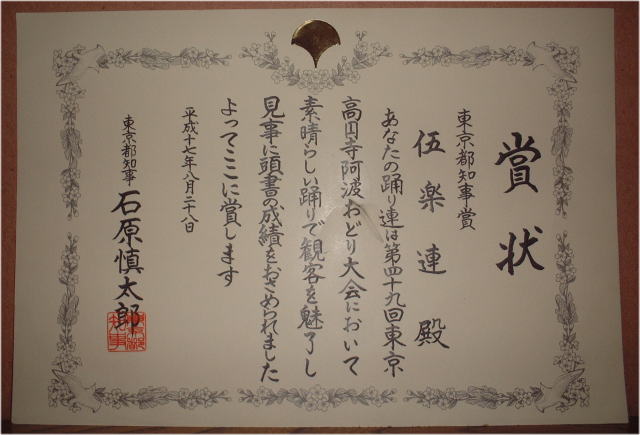 賞状
東京都知事賞
伍楽連殿
あなたの踊り連は第四十九回東京
高円寺阿波おどり大会において
素晴らしい踊りで観客を魅了し
見事に頭書の成績をおさめられました
よってここに賞します
平成十七年八月二十八日
東京都知事 石原慎太郎